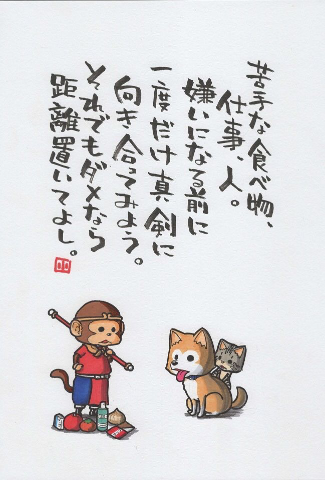 苦手な食べ物、
仕事、人。
嫌いになる前に
一度だけ真剣に
向き合ってみよう。
それでもダメなら
距離置いてよし。